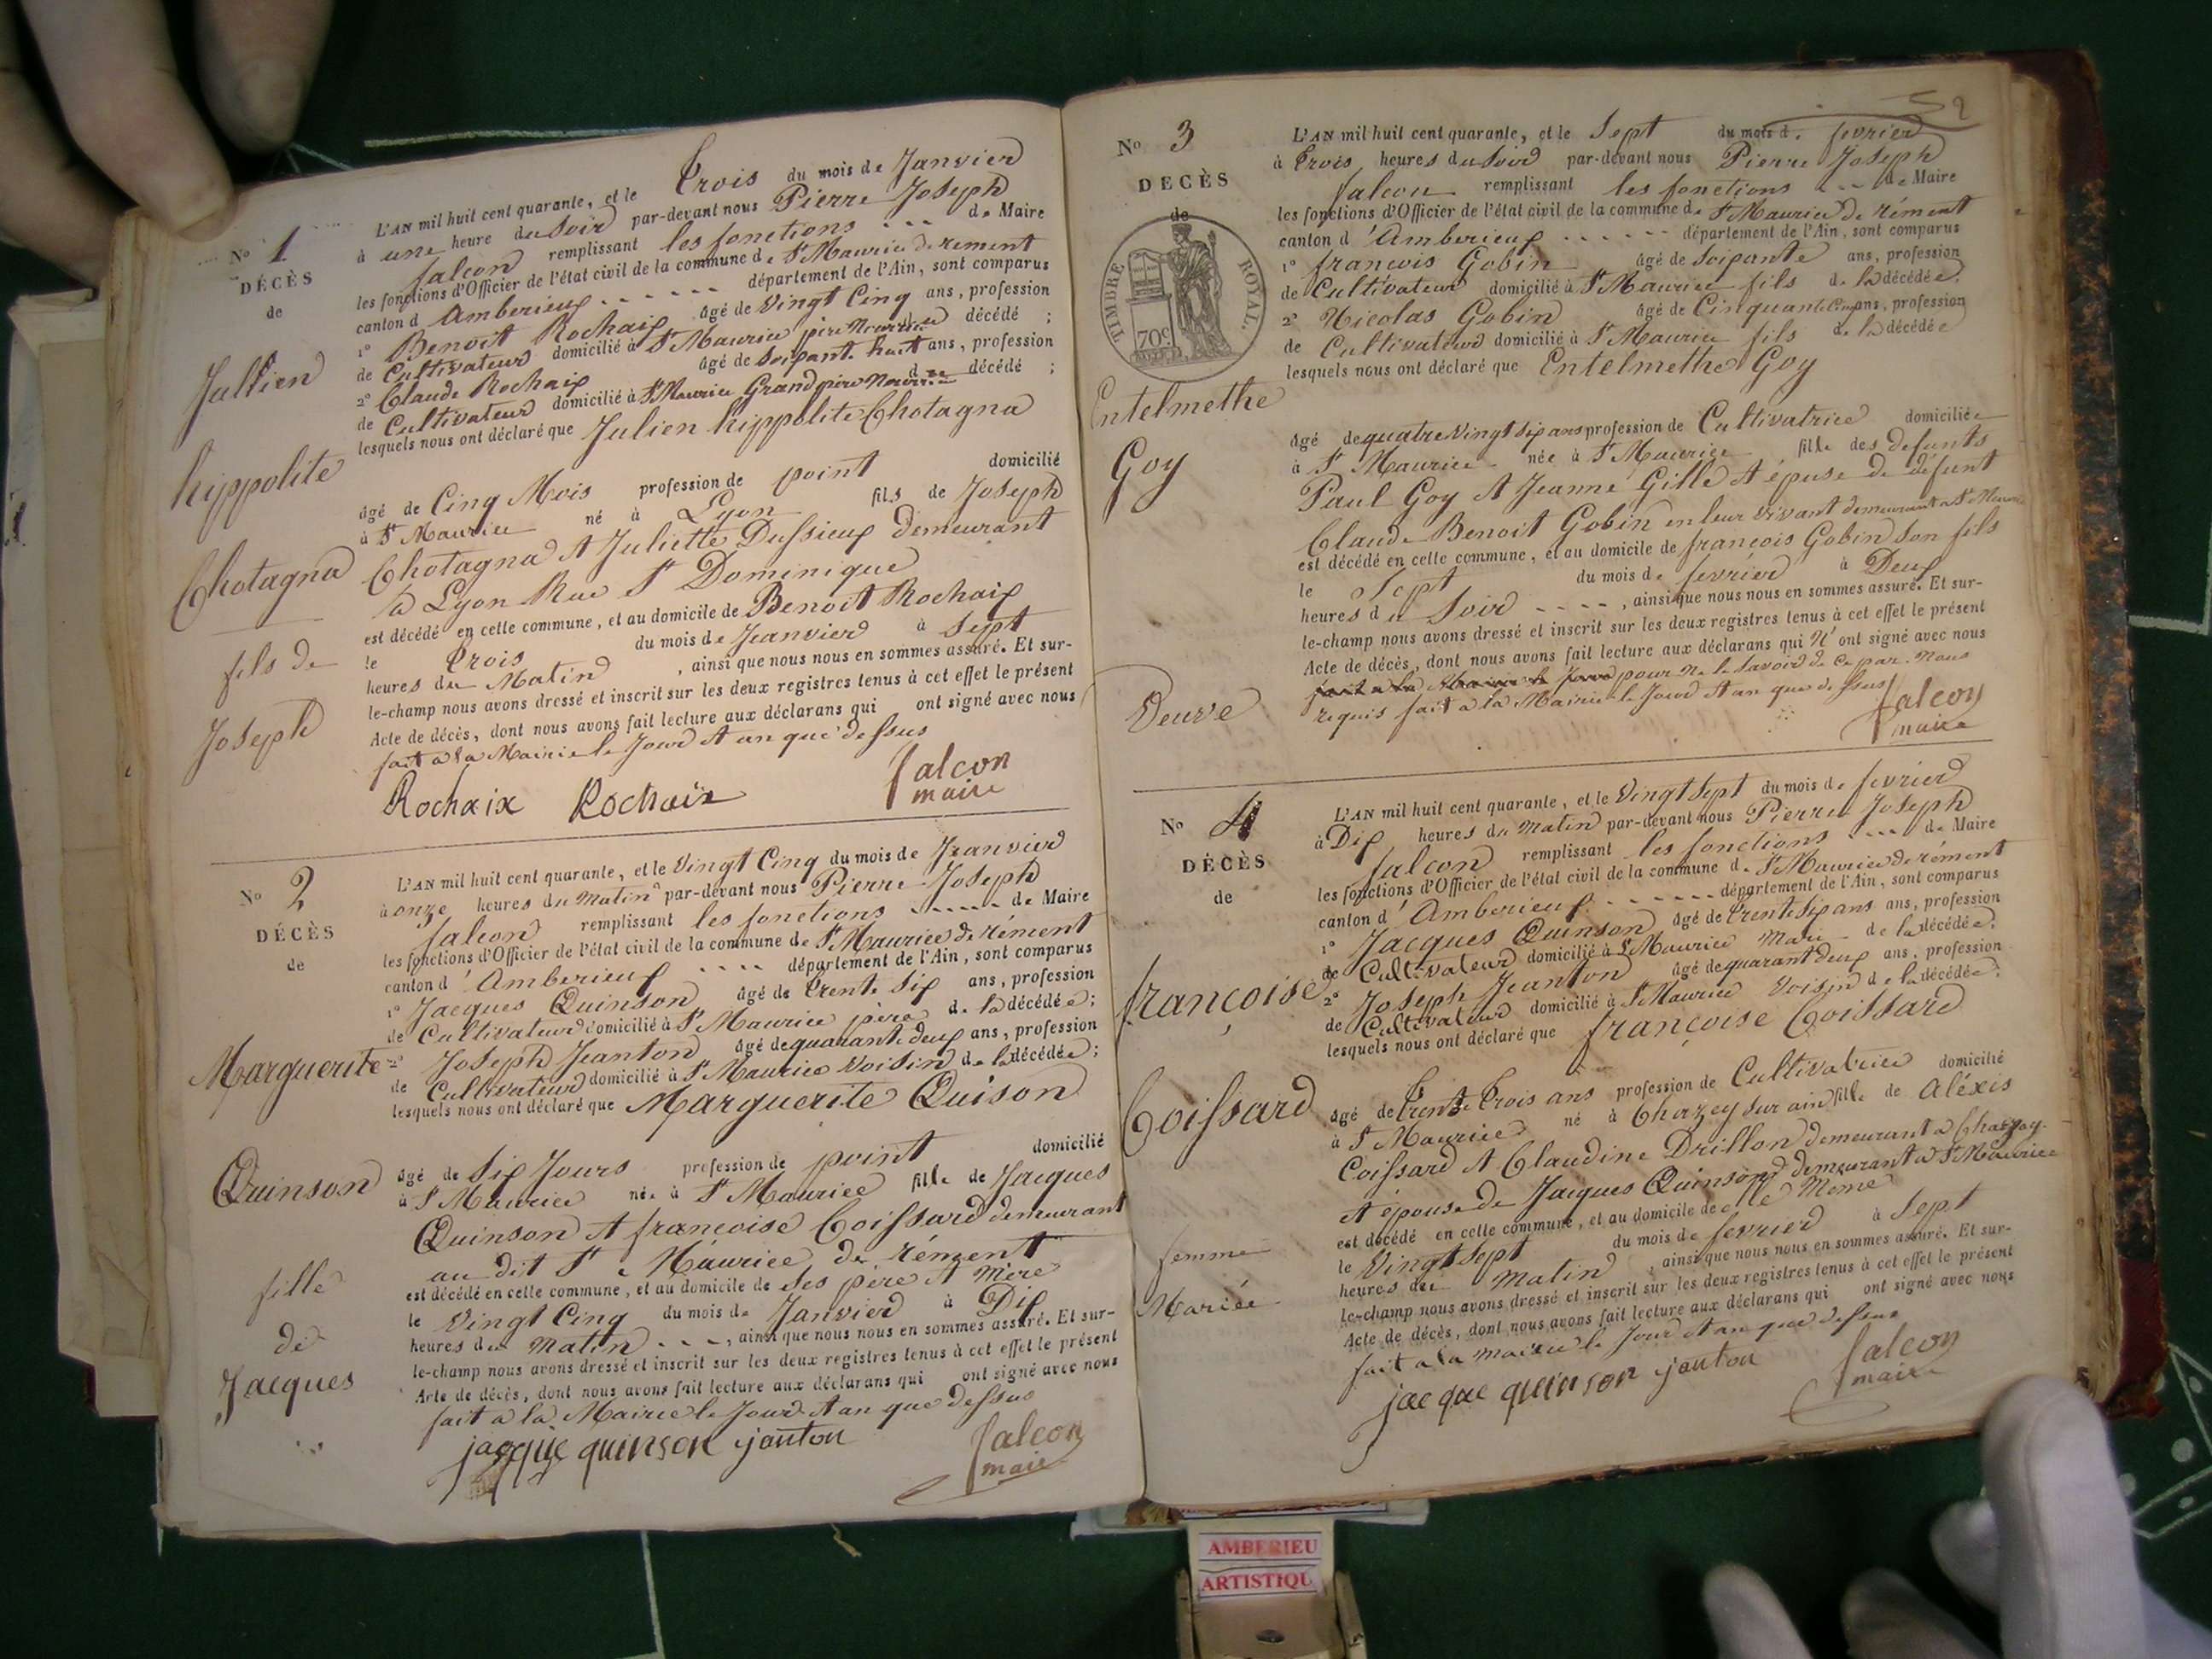 No 1
DÉCÈS
de
Jullien
hippolite
Chotagna
fils de
Joseph
L'AN mil huit cent quarante, et le Trois du mois de Janvier
à une heure du Soir par-devant nous Pierre Joseph
falcon remplissant les fonctions --- de Maire
les fonctions d'Officier de l'état civil de la commune de St Maurice de rement
canton d Amberieux ------ département de l'Ain, sont comparus
1º Benoit Rochaix âgé de Vingt Cinq ans, profession
de Cultivateur domicilié à St Maurice père décédé ;
2º Claude Rochaix âgé de Soixante huit ans, profession
de Cultivateur domicilié à St Maurice Grand père décédé ;
lesquels nous ont déclaré que Julien hippolite Chotagna
âgé de Cinq Mois profession de point domicilié
à St Maurice né à Lyon fils de Joseph
Chotagna et Juliette Dussieux demeurant
à Lyon Rue St Dominique
est décédé en celle commune, et au domicile de Benoit Rochaix
le Trois du mois de Jeanvier à Sept
heures du Matin , ainsi que nous nous en sommes assuré. Et sur-
le-champ nous avons dressé et inscrit sur les deux registres tenus à cet effet le présent
Acte de décès, dont nous avons fait lecture aux déclarans qui ont signé avec nous
fait a la Mairie le Jour et an que dessus
Rochaix Rochaix falcon
maire
No 2
DÉCÈS
de
Marguerite
Quinson
fille
de
Jacques
L'AN mil huit cent quarante, et le Vingt Cinq du mois de Jeanvier
à onze heures du Matin par-devant nous Pierre Joseph
falcon remplissant les fonctions ----- de Maire
les fonctions d'Officier de l'état civil de la commune de St Maurice de rément
canton d' Amberieux ---- département de l'Ain, sont comparus
1º Jacques Quinson âgé de Trente Six ans, profession
de Cultivateur domicilié à St Maurice père de la décédée ;
2º Joseph Jeanton âgé de quarante deux ans, profession
de Cultivateur domicilié à St Maurice Voisin de la décédée ;
lesquels nous ont déclaré que Marguerite Quison
âgé de Six Jours profession de point domicilié
à St Maurice née à St Maurice fille de Jacques
Quinson et francoise Coissard demeurant
au dit St Maurice de rément
est décédé en celle commune, et au domicile de Ses père et mère
le Vingt Cinq du mois de Janvier à Dix
heures du Matin ---, ainsi que nous nous en sommes assuré. Et sur-
le-champ nous avons dressé et inscrit sur les deux registres tenus à cet effet le présent
Acte de décès, dont nous avons fait lecture aux déclarans qui ont signé avec nous
fait a la Mairie le Jour et an que dessus
jacque quinson janton falcon
maire
52
No 3
DECÈS
de
TIMBRE ROYAL.
70c
Entelmethe
Goy
Veuve
L'AN mil huit cent quarante, et le Sept du mois d. fevrier
à Trois heures du Soir par-devant nous Pierre Joseph
falcon remplissant les fonctions --- de Maire
les fonctions d'Officier de l'état civil de la commune de St Maurice de rément
canton d' Amberieux ------ département de l'Ain, sont comparus
1º francois Gobin âgé de Soixante ans, profession
de Cultivateur domicilié à St Maurice fils de la décédée,
2º Nicolas Gobin âgé de Cinquante Cinq ans, profession
de Cultivateur domicilié à St Maurice fils de la décédée
lesquels nous ont déclaré que Entelmethe Goy
âgé de quatre Vingt Six ans profession de Cultivatrice domiciliée
à St Maurice née à St Maurice fille des defunts
Paul Goy et Jeanne Gille et épuse de défunt
Claude Benoit Gobin en leur vivant demeurant a St Maurice
est décédé en celle commune, et au domicile de francois Gobin Son fils
le Sept du mois de fevrier à Deux
heures du Soir ----, ainsi que nous nous en sommes assuré. Et sur-
le-champ nous avons dressé et inscrit sur les deux registres tenus à cet effet le présent
Acte de décès, dont nous avons fait lecture aux déclarans qui N' ont signé avec nous
fait a la Mairie le Jour pour ne le Savoir de ce par Nous
requis fait a la Mairie le Jour et an que dessus falcon
maire
No 4
DÉCÈS
de
françoise
Coissard
femme
Mariée
L'AN mil huit cent quarante, et le Vingt Sept du mois de fevrier
à Dix heures du Matin par-devant nous Pierre Joseph
falcon remplissant les fonctions --- de Maire
les fonctions d'Officier de l'état civil de la commune d. St Maurice de rément
canton d' Amberieux ------- département de l'Ain, sont comparus
1º Jacques Quinson âgé de Trente Six ans ans, profession
de Cultivateur domicilié à St Maurice Mari de la décédée ;
2º Joseph Jeanton âgé de quarant deux ans, profession
de Cultivateur domicilié à St Maurice Voisin de la décédée ;
lesquels nous ont déclaré que françoise Coissard
âgé de Trente Trois ans profession de Cultivatrice domicilié
à St Maurice né à Chazey sur ain fille de Aléxis
Coissard et Claudine Drillon demeurant a Chazay
et épouse de Jacques Quinson demeurant a St Maurice
est décédé en celle commune, et au domicile de elle Meme
le Vingt Sept du mois de fevrier à Sept
heures du Matin , ainsi que nous nous en sommes assuré. Et sur-
le-champ nous avons dressé et inscrit sur les deux registres tenus à cet effet le présent
Acte de décès, dont nous avons fait lecture aux déclarans qui ont signé avec nous
fait a la mairie le Jour et an que dessus
jacque quinson janton falcon
maire
AMBERIEU
ARTISTIQU